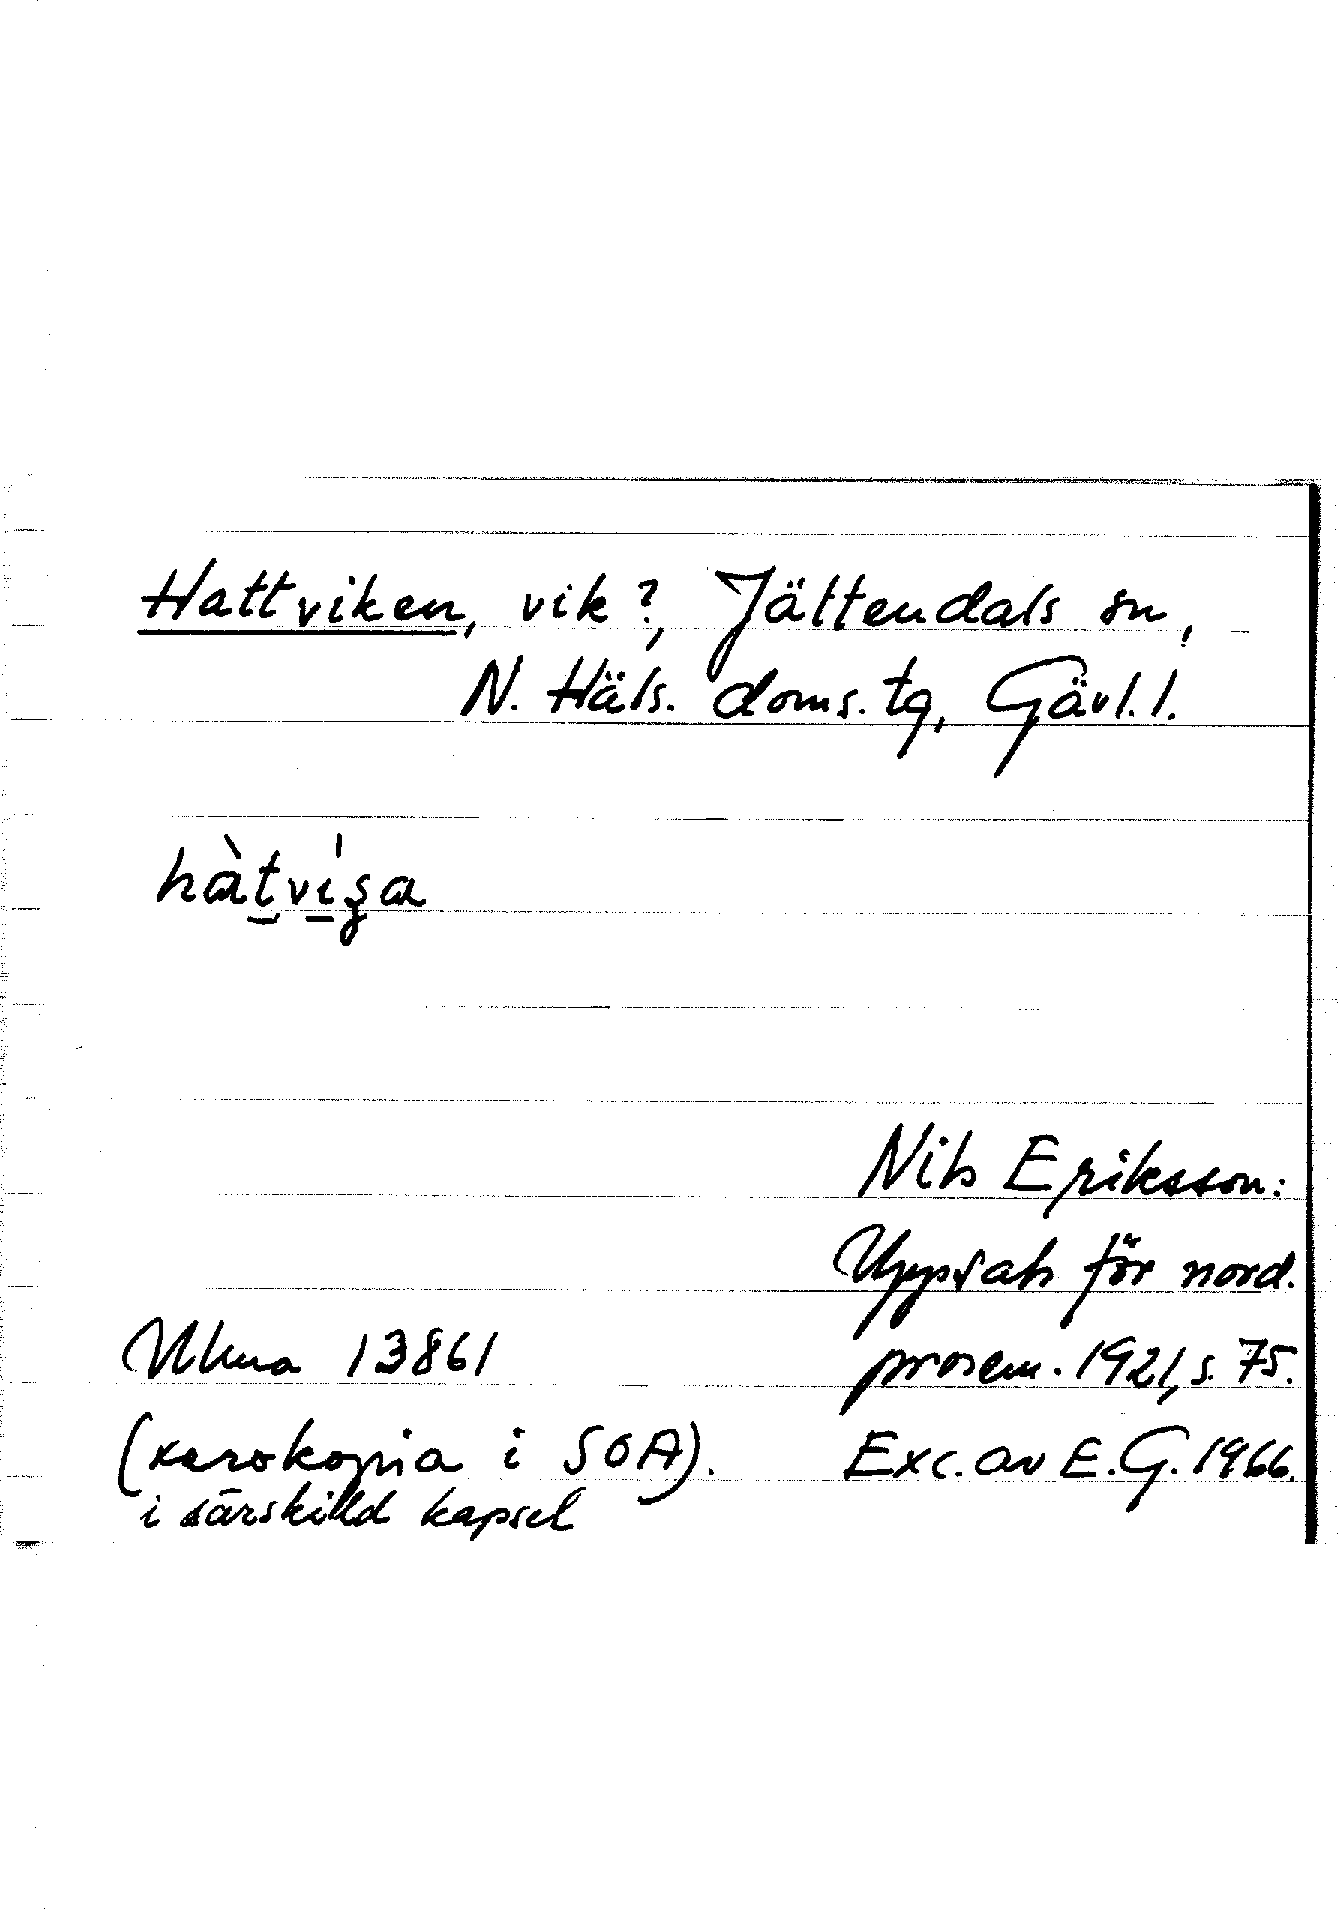 Hattviken, vik?, Jättendals sn,
N. Häls. doms. tg, Gävl. l.
Nils Eriksson:
Uppsats för nord.
prosem. 1921, s. 75.
Exc. av E. G. 1966.
13861
(xerokopia i SOA).
i särskilld kapsel